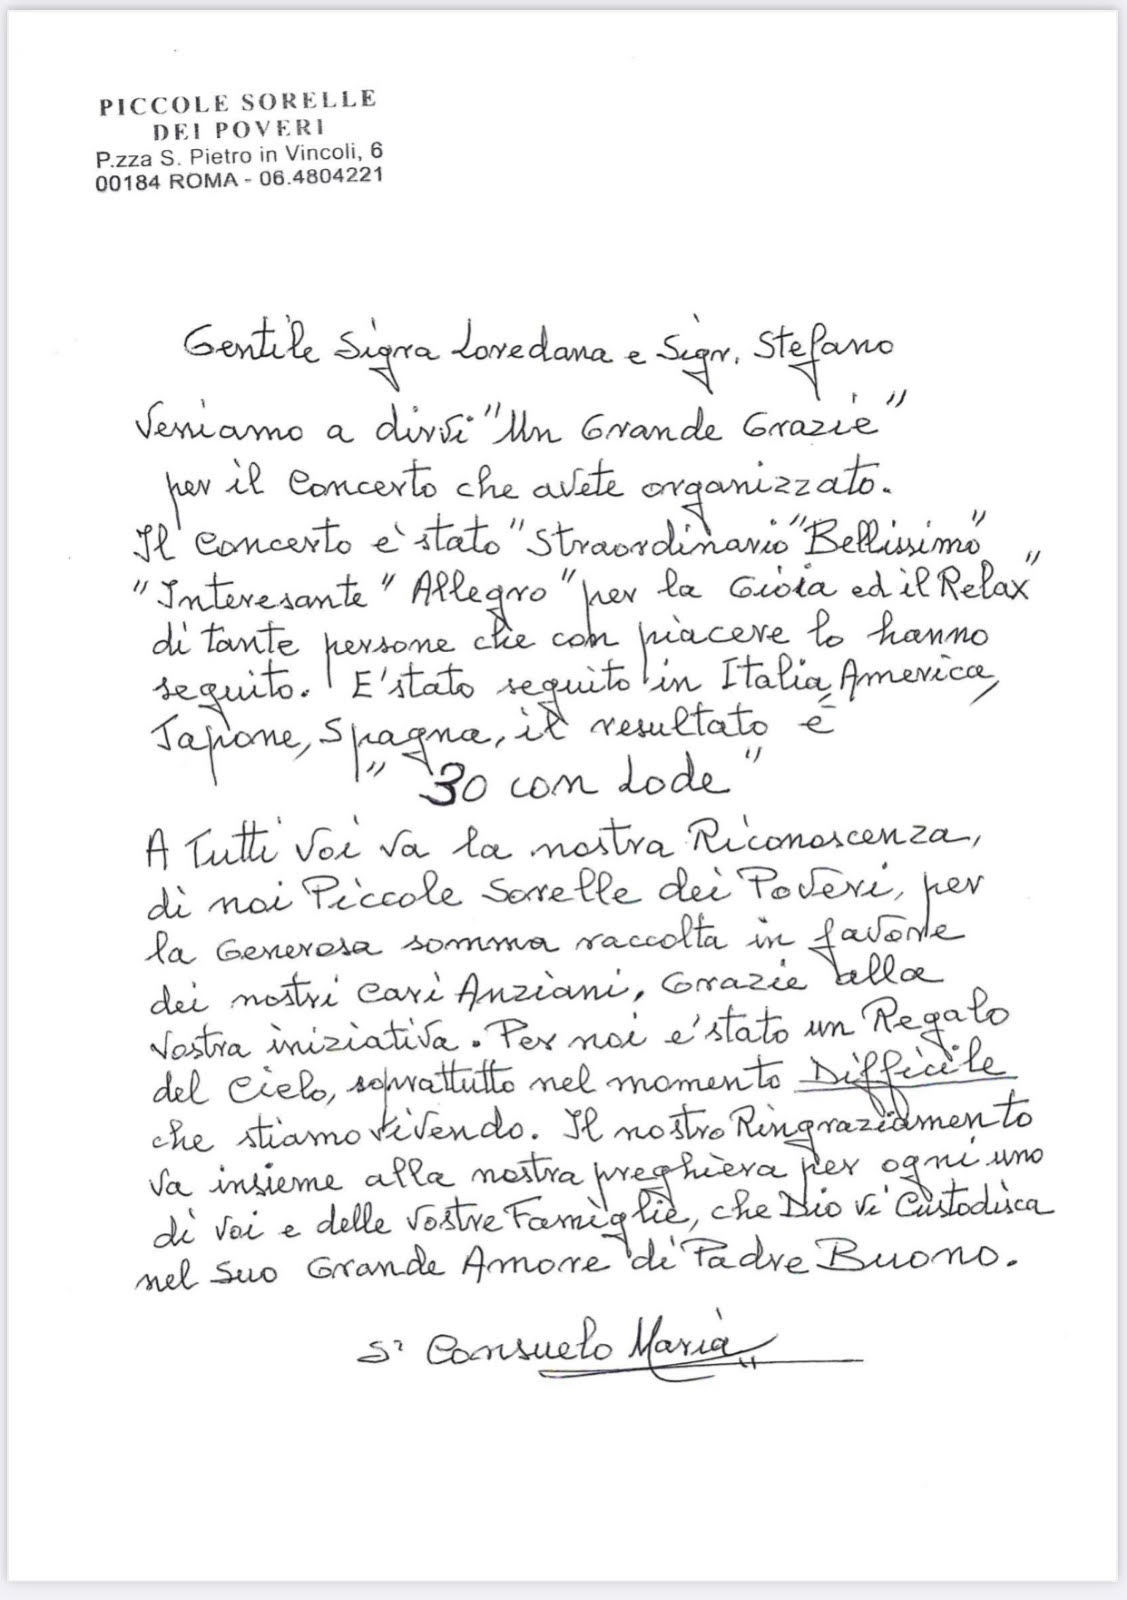 PICCOLE SORELLE
DEI POVERI
P.zza S. Pietro in Vincoli, 6
00184 ROMA - 06.4804221
Gentile Sigra Loredana e Sigr. Stefano
Veniamo a dirvi "Un Grande Grazie"
per il Concerto che avete organizzato.
Il Concerto e' stato "Straordinario" "Bellissimo"
"Interesante" Allegro "per la Gioia ed il Relax"
di tante persone che con piacere lo hanno
seguito. E' stato seguito in Italia, America,
Japone, Spagna, il resultato é
"30 con Lode"
A Tutti Voi va la nostra Riconoscenza,
di noi Piccole Sorelle dei Poveri, per
la Generosa somma raccolta in favore
dei nostri cari Anziani, Grazie alla
Vostra iniziativa. Per noi e' stato un Regalo
del Cielo, soprattutto nel momento Difficile
che stiamo vivendo. Il nostro Ringraziamento
va insieme alla nostra preghiera per ogni uno
di voi e delle Vostre Famiglie, che Dio vi Custodisca
nel Suo Grande Amore di Padre Buono.
Sr Consuelo Maria